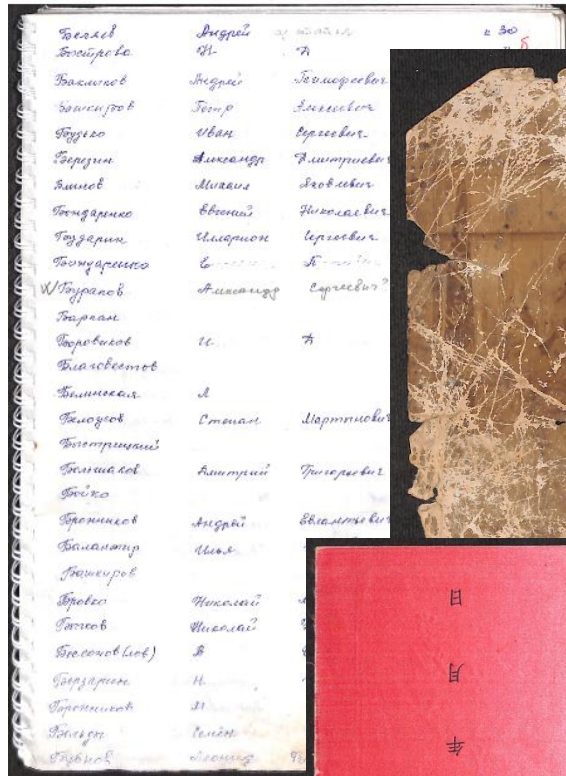 Беляев Андрей к 30
Быстрова Н А б
Баклыков Андрей Тимофеевич
Башкиров Петр Алексеевич
Будько Иван Сергеевич
Березин Александр Дмитриевич
Блинов Михаил Яковлевич
Бондаренко Евгений Николаевич
Илларион Сергеевич
Бондаренко Е П
Бурапов Александр Сергеевич?
Баркан
Боровиков И А
Благовестов
Белинская Л
Белоусов Степан Мартынович
Быстрицкий
Большаков Дмитрий Григорьевич
Бойко
Бронников Андрей
Илья
Башкиров
Бровко Николай
Бычков Николай
В
Берзарин Н
Бронников М
Бельды Семён
Леонид
日
月
年